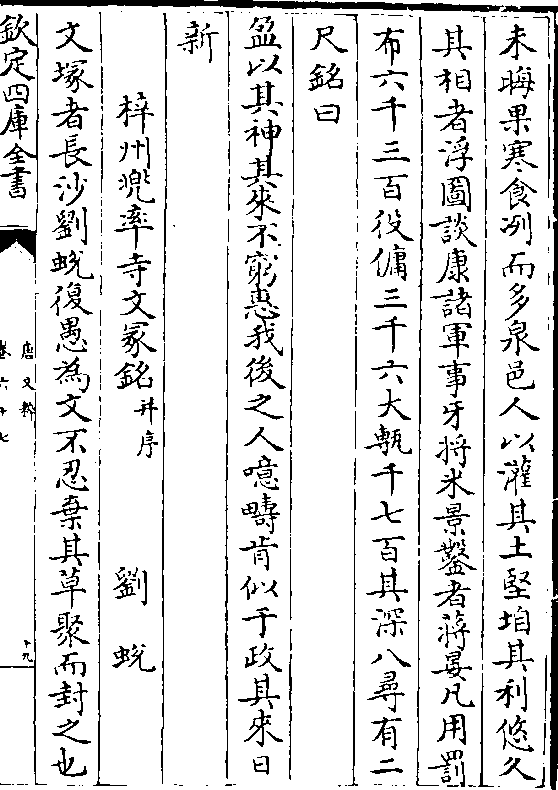 未晦果寒食冽而多泉邑人以灌其土堅垍其利悠久
其相者浮圖談康諸軍事牙將米景鑿者蔣晏凡用罰
布六千三百役傭三千六大甎千七百其深八尋有二
尺銘曰
盈以其神其來不窮惠我後之人噫疇肯似于政其來日
新
梓州兜率寺文冢銘并序　劉蛻
文塚者長沙劉蛻復愚為文不忍棄其草聚而封之也
欽定四庫全書
唐文粹
卷六十七
十九